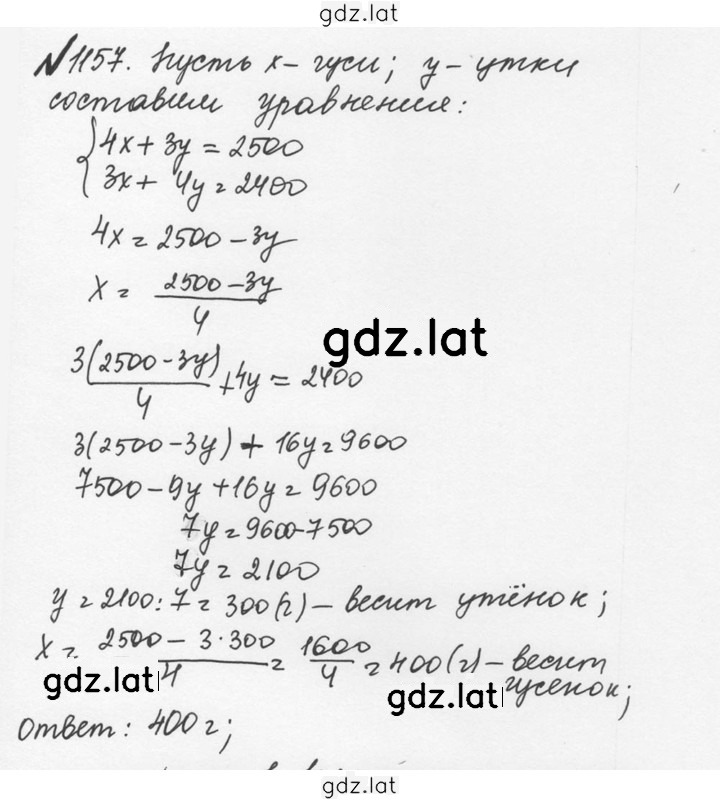 gdz.lat
№1157. Пусть x – гуси; y – утки
составим уравнение:
{4x + 3y = 2500
{3x + 4y = 2400
4x = 2500 – 3y
x = (2500 – 3y)/4
gdz.lat
3(2500 – 3y)/4 + 4y = 2400
3(2500 – 3y) + 16y = 9600
7500 – 9y + 16y = 9600
7y = 9600 - 7500
7y = 2100
y = 2100 : 7 = 300 (г) – весит утёнок;
x = (2500 – 3·300)/4 = 1600/4 = 400 (г) – весит
гусенок;
gdz.lat
gdz.lat
Ответ: 400 г;
gdz.lat